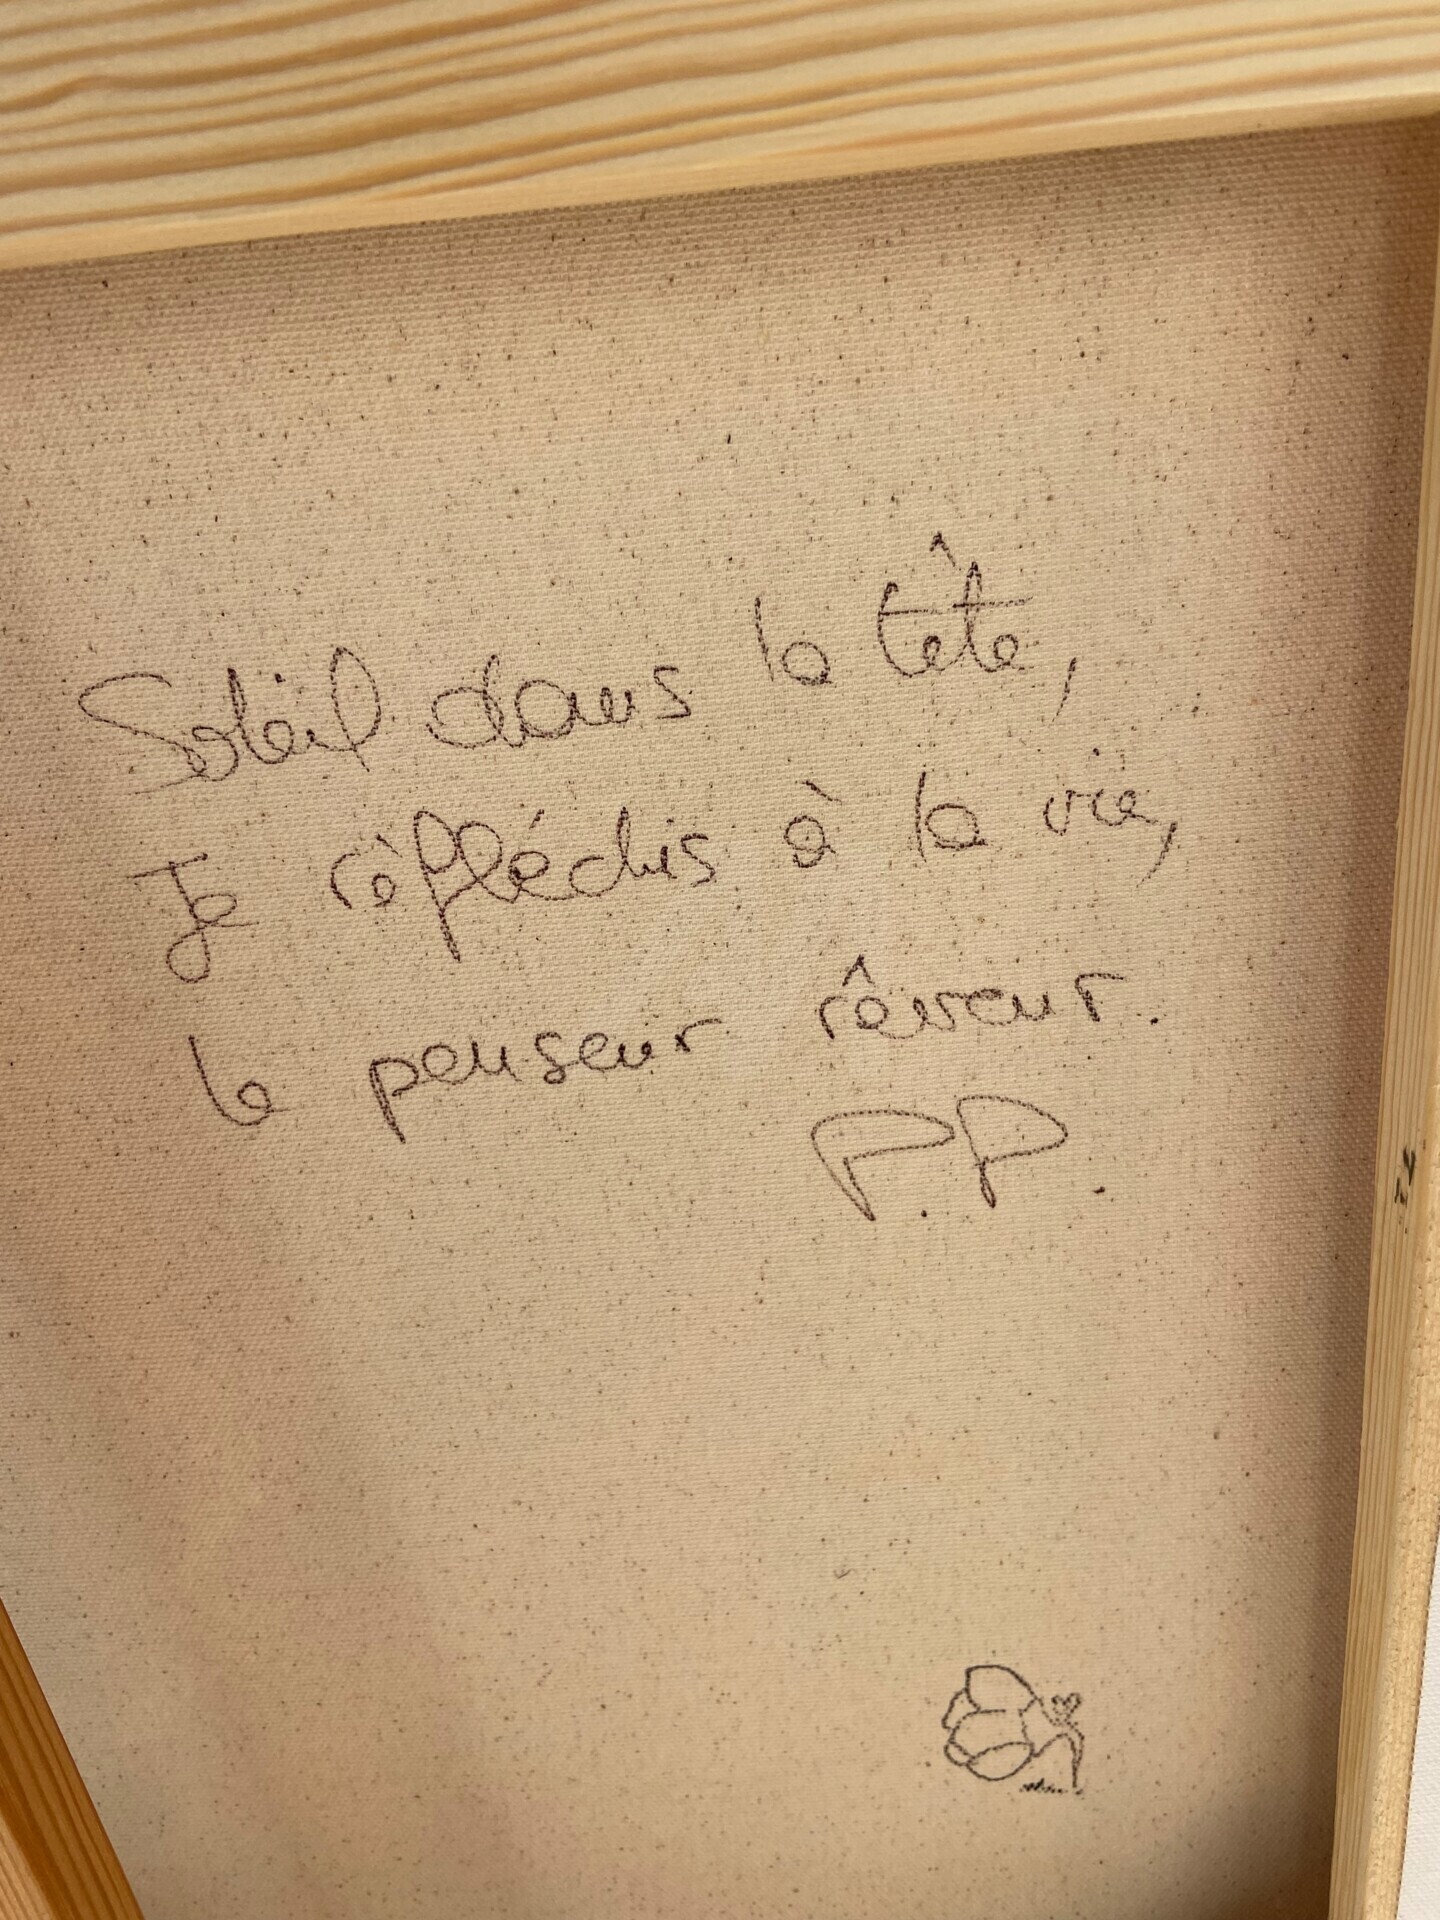 Soleil dans la tête,
Je rèfléchis à la vie,
le penseur rêveur.
P.P.